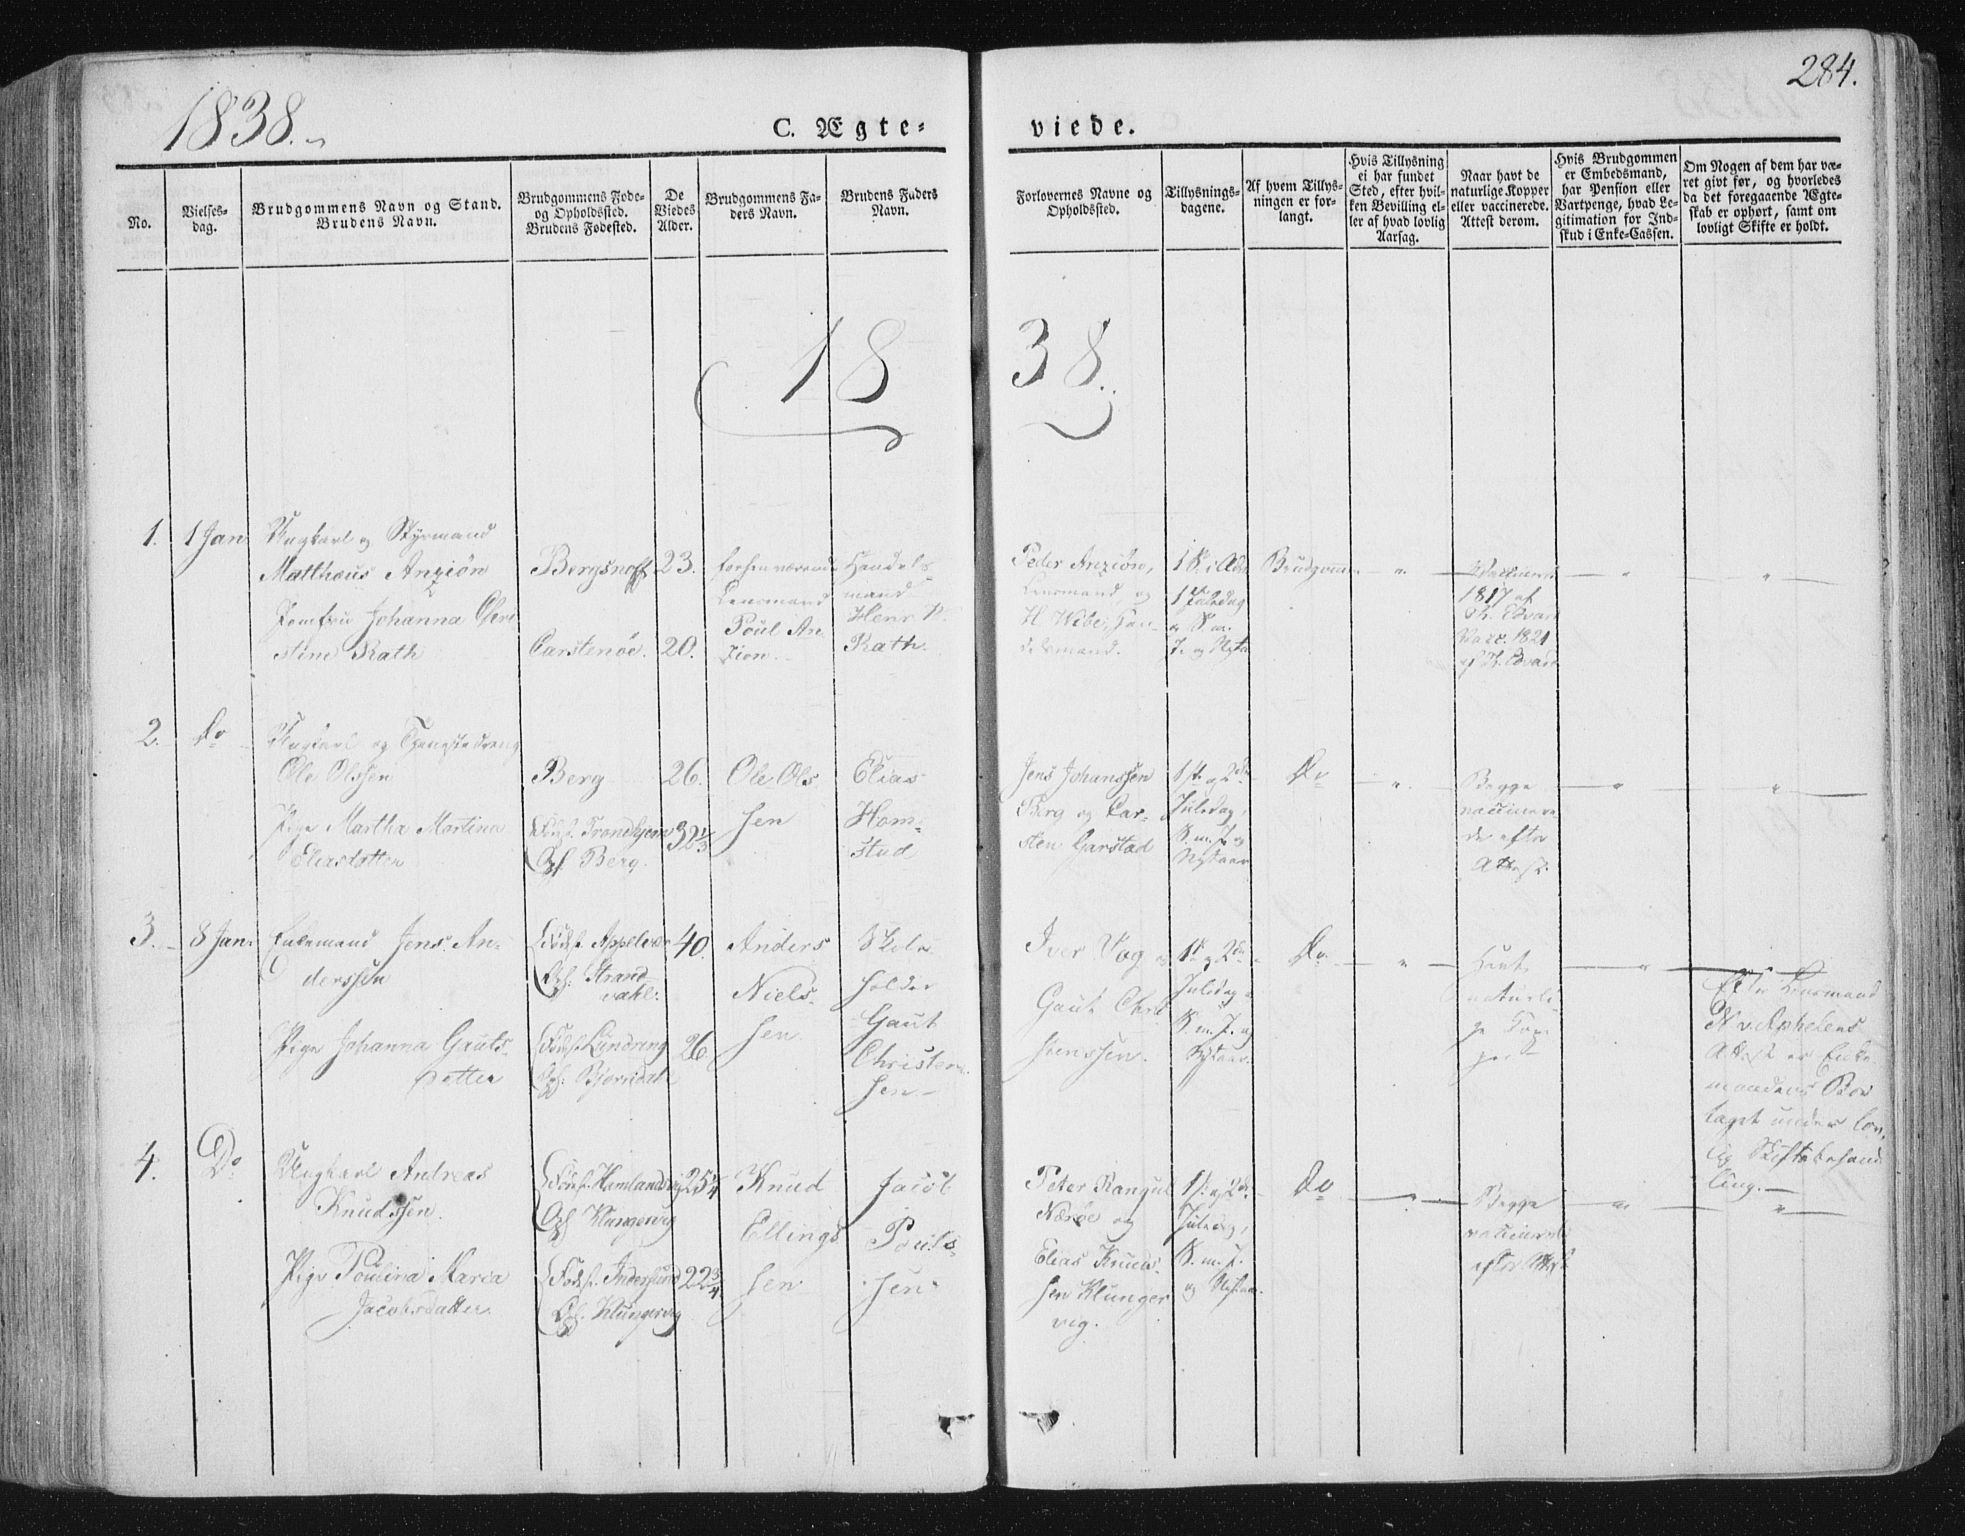 1838.
284.
C. Ægte=
viede.
No.
Vielses-
dag.
Brudgommens Navn og Stand.
Brudens Navn.
Brudgommens Føde-
og Opholdssted.
Brudens Fødested.
De
Viedes
Alder.
Brudgommens Fa-
ders Navn.
Brudens Faders
Navn.
Forlovernes Navne og
Opholdssted.
Tillysnings-
dagene.
Af hvem Tillys-
ningen er for-
langt.
Hvis Tillysning
ei har fundet
Sted, efter hvil-
ken Bevilling el-
ler af hvad lovlig
Aarsag.
Naar havt de
naturlige Kopper
eller vaccinerede.
Attest derom.
Hvis Brudgommen
er Embedsmand,
har Pension eller
Vartpenge, hvad Le-
gitimation for Ind-
skud i Enke-Cassen.
Om Nogen af dem har væ-
ret givt før, og hvorledes
da det foregaaende Ægte-
skab er ophørt, samt om
lovligt Skifte er holdt.
18
38.
1.
1 Jan
Ungkarl og Styrmand
Matthæus Anziøn
Jomfru Johanna Chri
stine Rath
Bergsnoff
Carstenøe.
23.
20.
forhenværende
Lensmand
Poul An
zion.
Handels
mand
Henr.
Rath.
Peder Anziøn,
Lensmand, og
H. Wibe, Han-
delsmand.
1 S. i Adv
1 Juledag
og S. m.
J. og Nyta
Brudgom
1817 af
Vacc. 1821
2.
Do
Ungkarl og Tjenestedreng
Ole Olssen
Pige Martha Martina
Eliasdatter
Berg
Føds. Trondhjem
Oph. Berg.
26.
32 1/3
Ole Ols
sen
Elias
Hom-
stad
Jens Johanssen
Berg og Car-
sten Garstad
1ste og 2den
Juledag,
S. m. J. og
Nytaar
Do
Begge
vaccinere
de efter
Attest.
3.
8 Jan.
Enkemand Jens An-
derssen
Pige Johanna Gauts-
datter
Føds. Appelvær
Oph. Strand
dahl.
Føds. Lundring
Oph. Bjørndahl
40.
26.
Anders
Niels-
sen
Skole
holder
Gaut
Christen
sen
Iver Vog og
Gaut Chri
stenssen.
1ste og 2den
Juledag
S. m. J. og
Nytaar.
Do
Havt
naturli
ge Kop
per
Efter Lensmand
N. v. Aphelens
Attest er Enke
mandens Boe
taget under lov-
lig Skiftebehand
ling.
4.
Do
Ungkarl Andreas
Knudssen.
Pige Poulina Maria
Jacobsdatter
Føds. Hamlandsvig
Oph. Klungervig
Føds. Inderslund
Oph. Klungervig
25 1/4
22 3/4
Knud
Ellings
sen
Jacob
Pouls-
sen
Peter Rangul
Nærøe og
Elias Knuds-
sen Klunger
vig.
1ste og 2den
Juledag,
S. m. J.
og Nytaar.
Do
Begge
vaccinerede
efter Attest